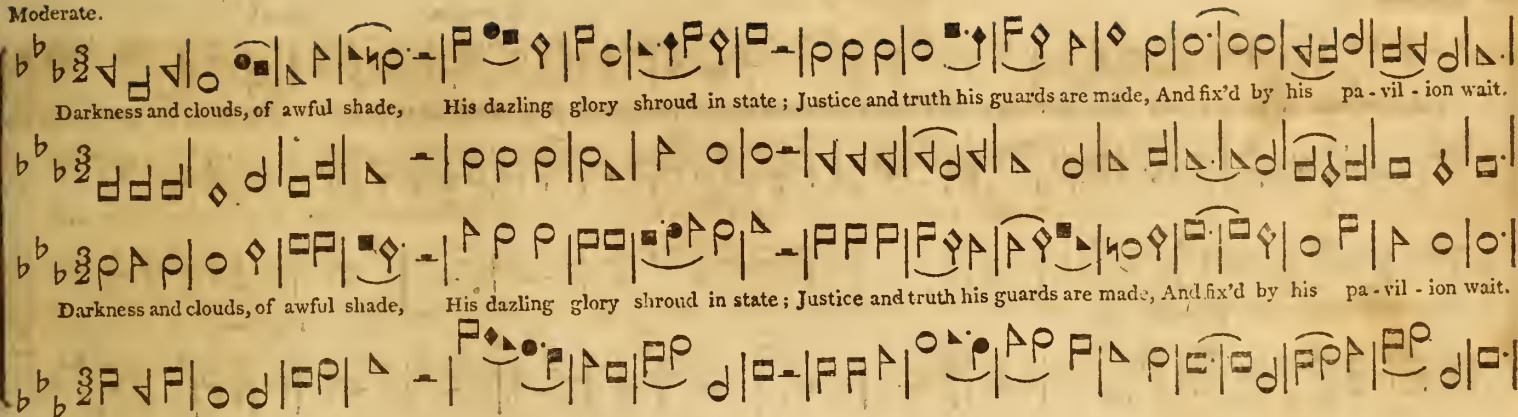 Moderate.
Darkness and clouds, of awful shade, His dazling glory shroud in state ; Justice and truth his guards are made, And fix'd by his pa - vil - ion wait.
Darkness and clouds, of awful shade, His dazling glory shroud in state ; Justice and truth his guards are made, And fix'd by his pa - vil - ion wait.